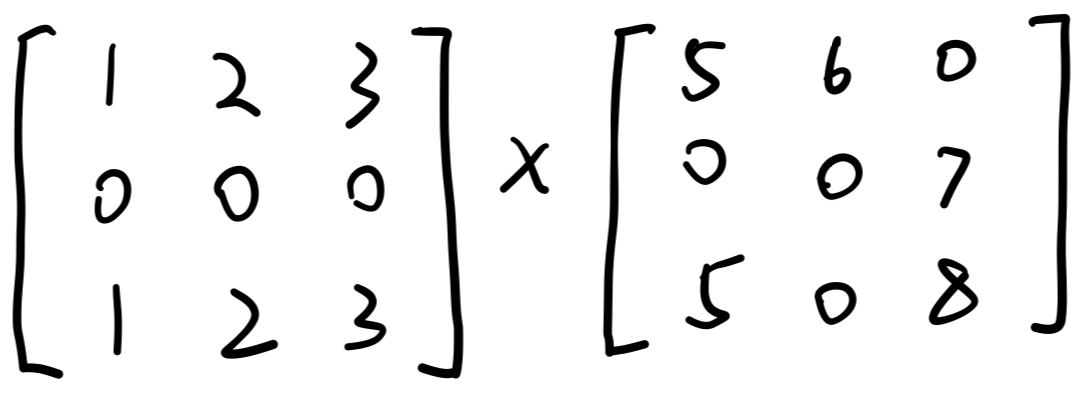 [1 2 3
0 0 0
1 2 3] × [5 6 0
0 0 7
5 0 8]